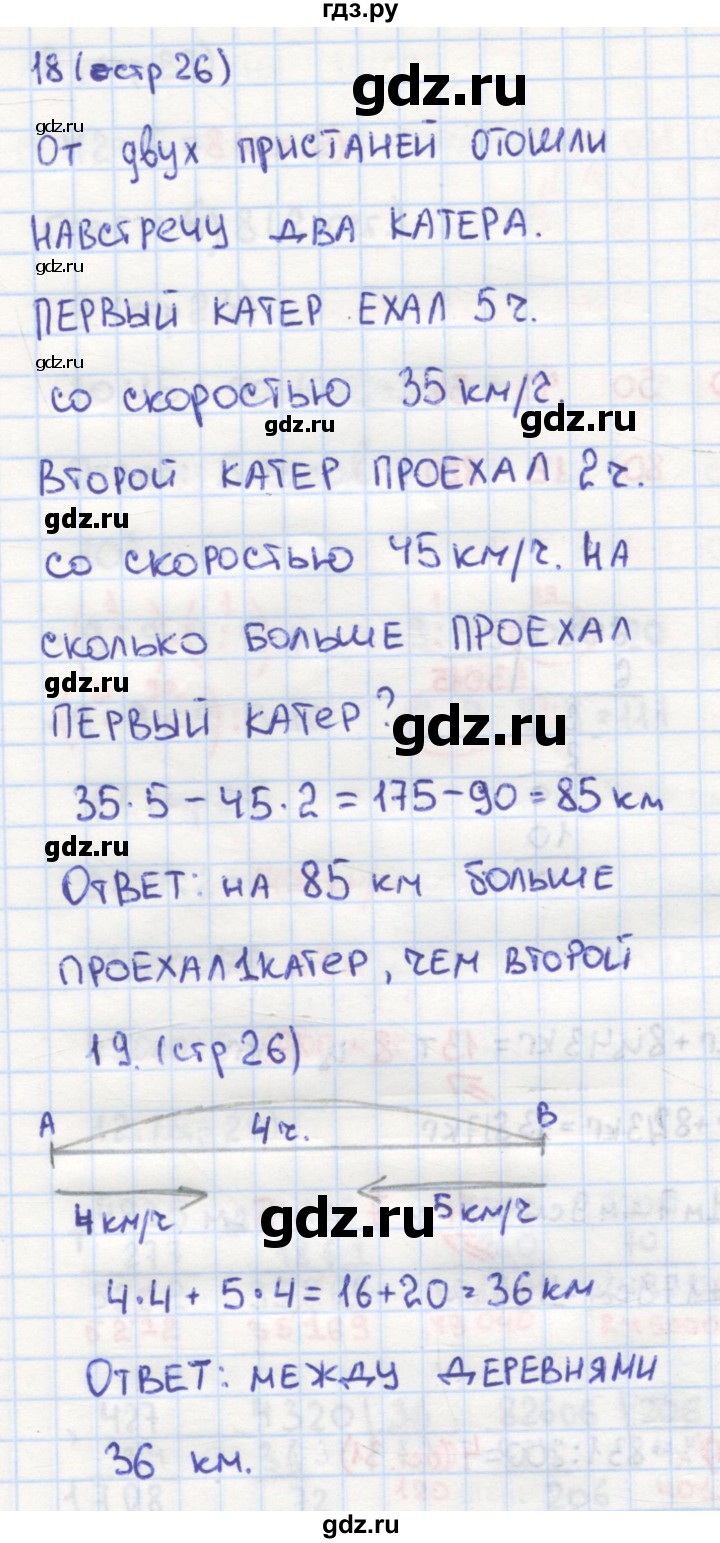 гдз.ру
18 (стр 26)
gdz.ru
gdz.ru
От двух пристаней отошли
навстречу два катера.
gdz.ru
Первый катер ехал 5 ч.
gdz.ru
со скоростью 35 км/ч.
gdz.ru
gdz.ru
Второй катер проехал 2 ч.
gdz.ru
со скоростью 45 км/ч. На
сколько больше проехал
gdz.ru
первый катер?
gdz.ru
35·5-45·2=175-90=85 км
gdz.ru
Ответ: на 85 км больше
проехал 1 катер, чем второй
19. (стр 26)
А 4 ч. В
4 км/ч 5 км/ч
gdz.ru
4·4+5·4=16+20=36 км
Ответ: между деревнями
36 км.
gdz.ru